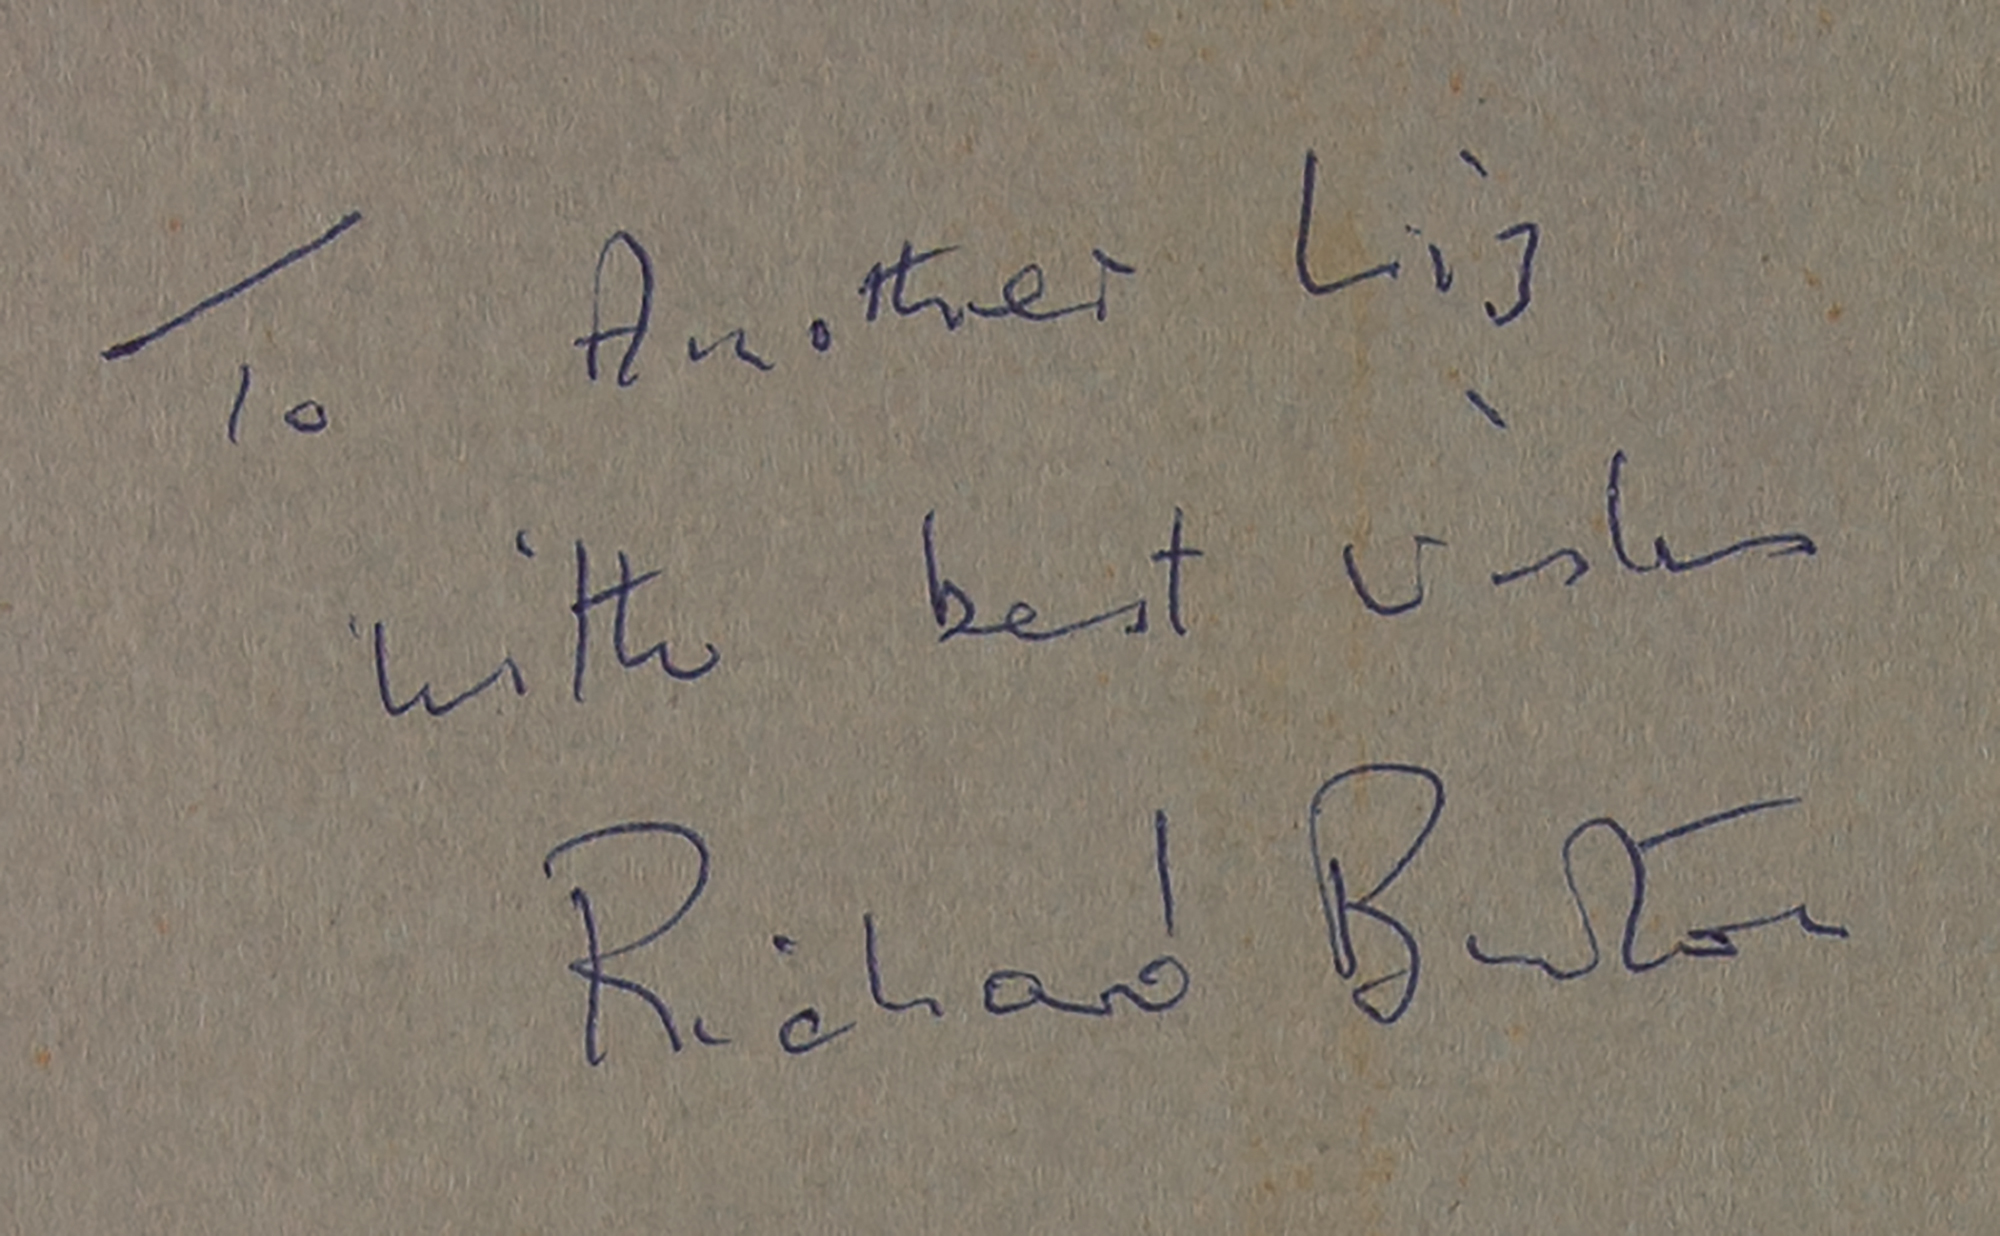 To Another Liz
with best wishes
Richard Burton